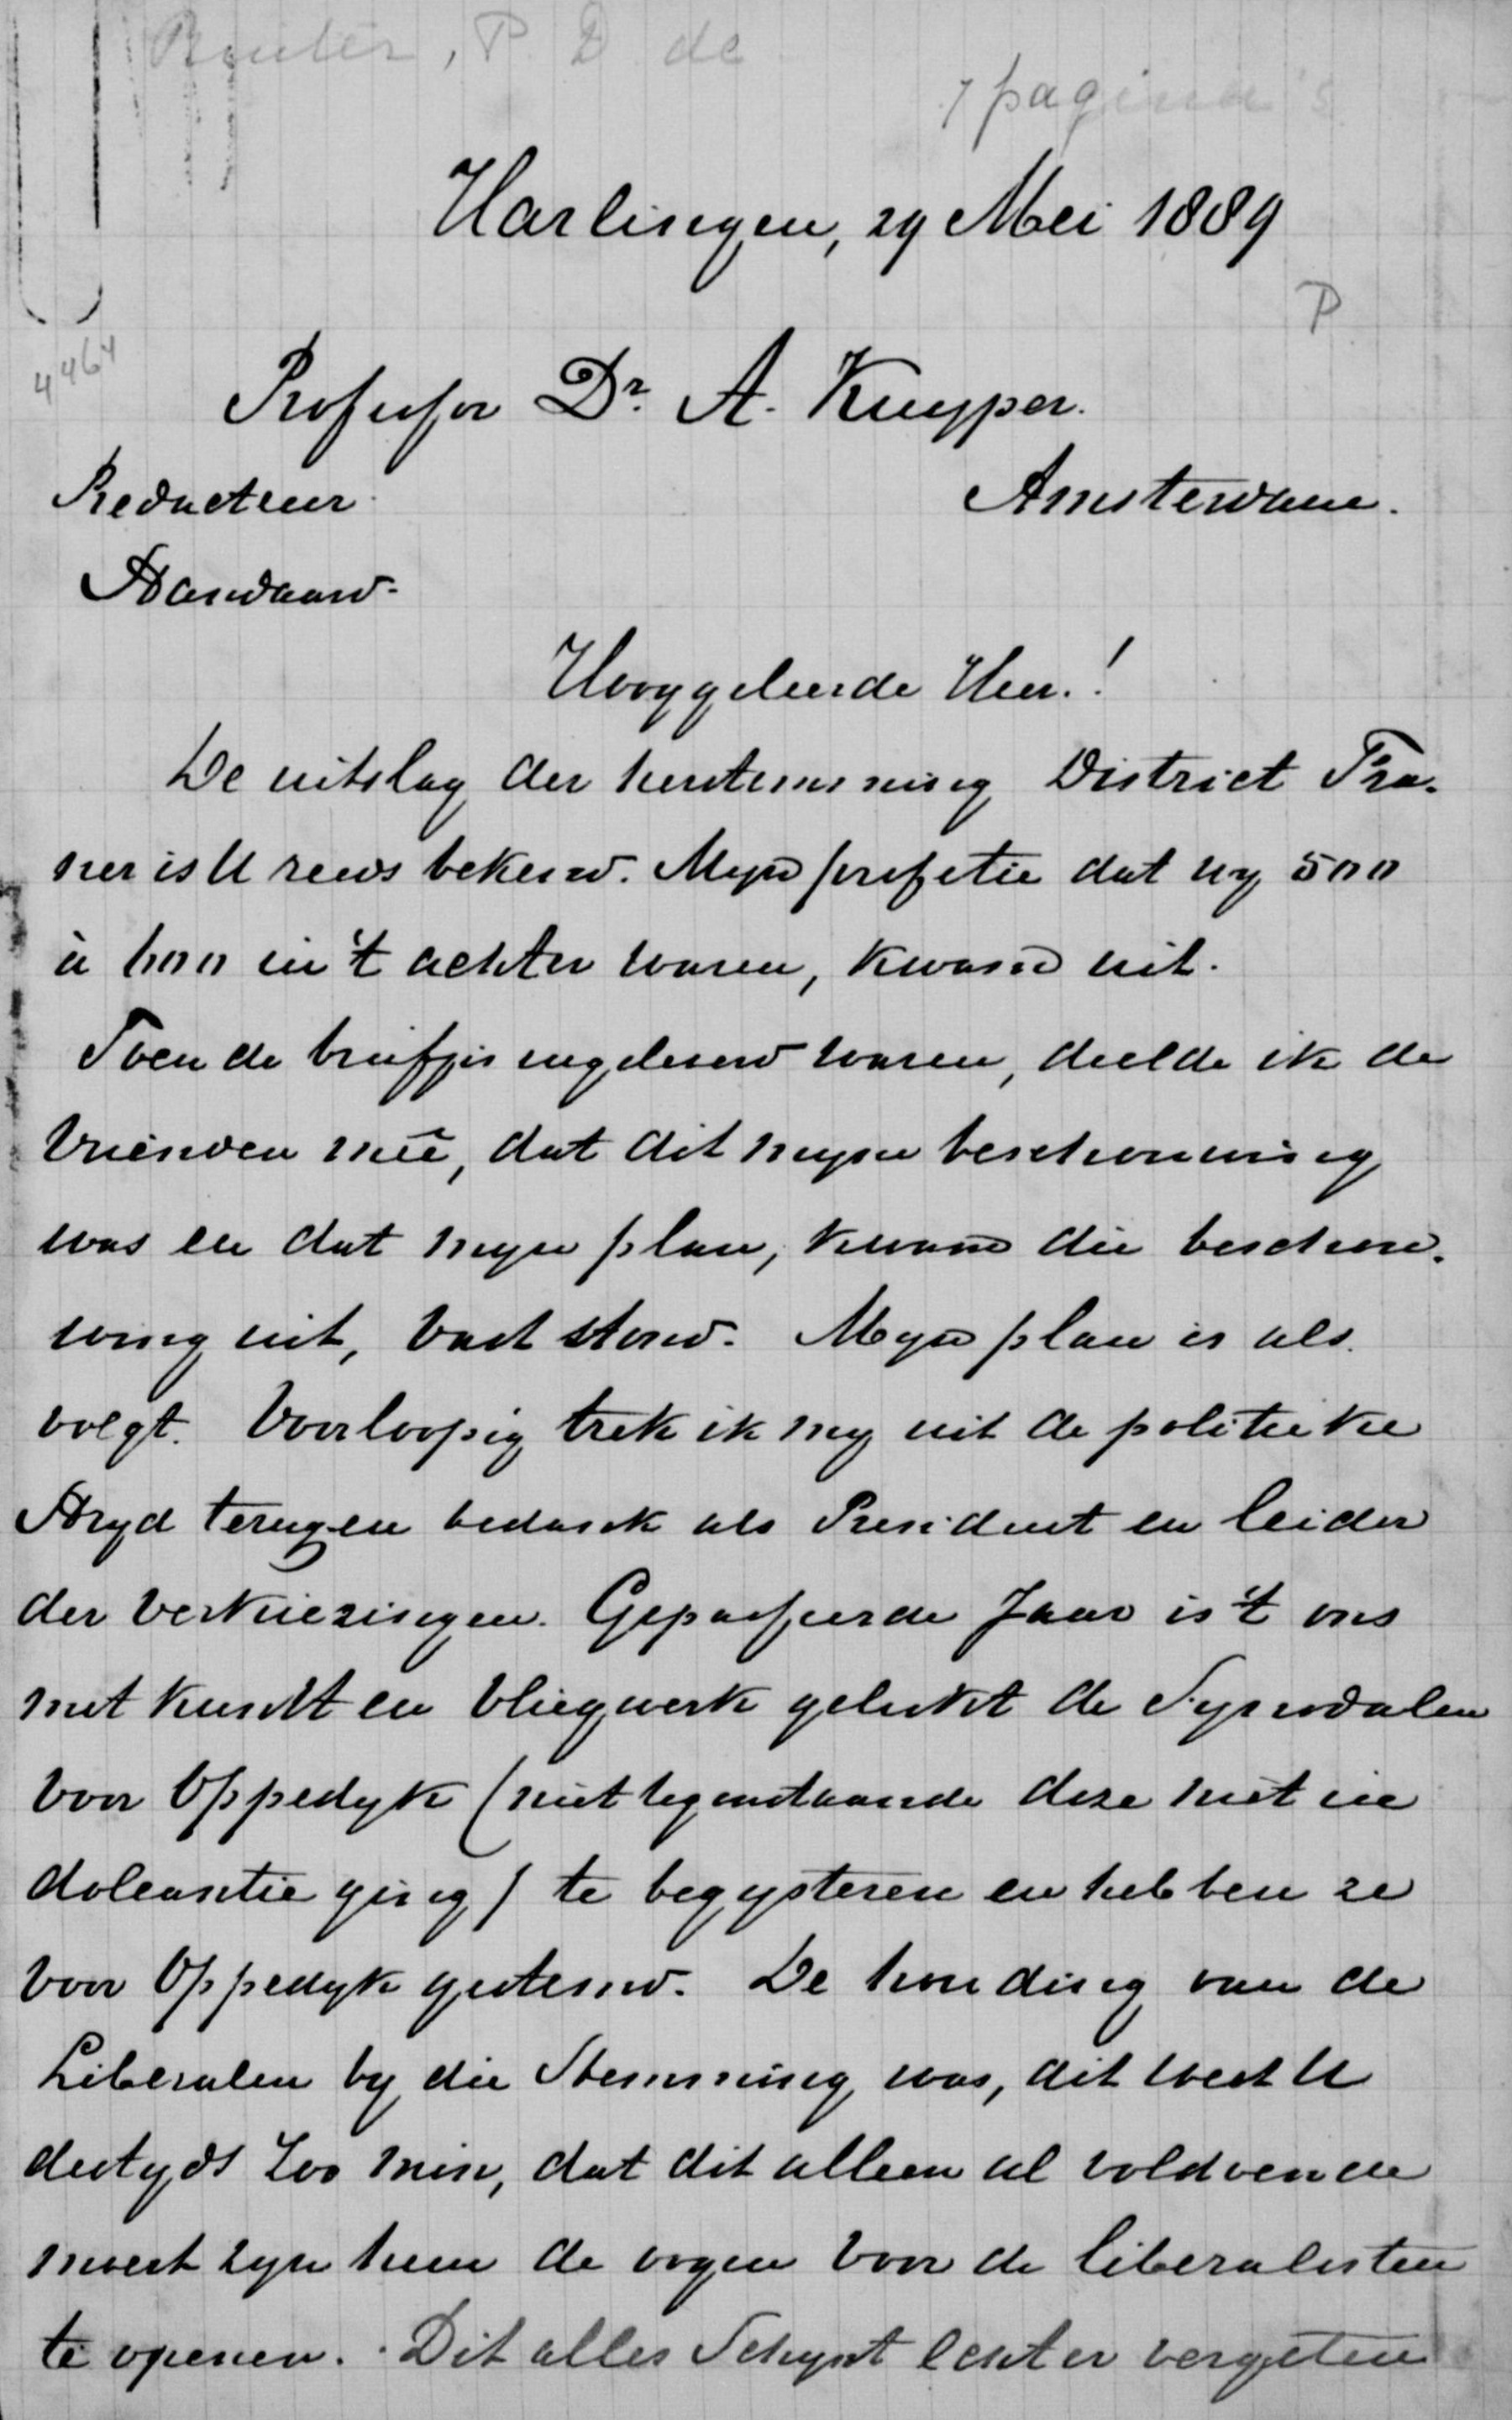 Ruuter, P. D. de
7 pagina's
Harlingen, 29 Mei 1889
P
4464
Professor Dr. A. Kuyper.
Redacteur
Amsterdam.
Standaard.
Hooggeleerde Heer!
De uitslag der herstemming District Fra-
neker is U reeds bekend. Myn profetie dat wy 500
à 600 in 't achter waren, kwam uit.
Toen de briefjes ingeleverd waren, deelde ik de
Vrienden meê, dat dit myn beschouwing
was en dat myn plan, kwam die beschou-
wing uit, vast stond. Myn plan is als
volgt. Voorloopig trek ik my uit de politieke
Stryd terug en bedank als President en leider
der verkiezingen. Gepasseerde Jaar is 't ons
met kunst en vliegwerk gelukt de Synodalen
voor Oppedyk (niettegenstaande deze niet in
doleantie ging) te begysteren en hebben ze
voor Oppedyk gestemd. De houding van de
Liberalen by die Stemming was, dit weet U
destyds zoo min, dat dit alleen al voldoende
moest zyn hun de oogen voor de liberalisten
te openen. Dit alles Schynt echter vergeten